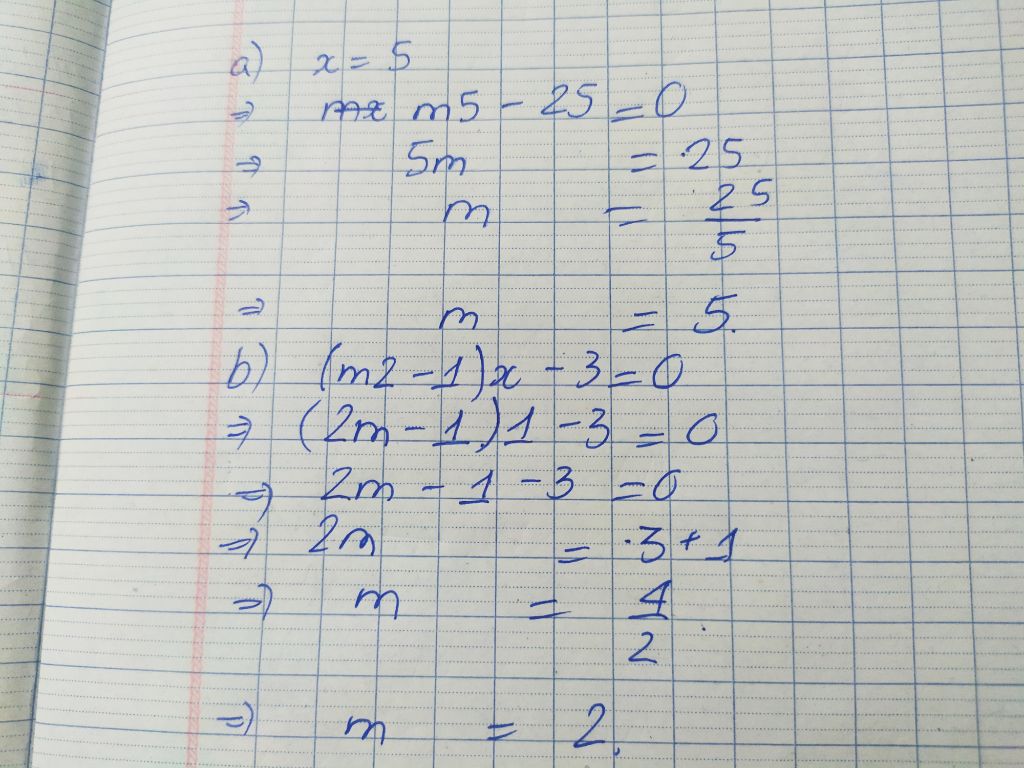 a) x = 5
⇒ m5 - 25 = 0
⇒ 5m = 25
⇒ m = 25/5
⇒ m = 5.
b) (m2 - 1)x - 3 = 0
⇒ (2m - 1)1 - 3 = 0
⇒ 2m - 1 - 3 = 0
⇒ 2m = 3 + 1
⇒ m = 4/2
⇒ m = 2.